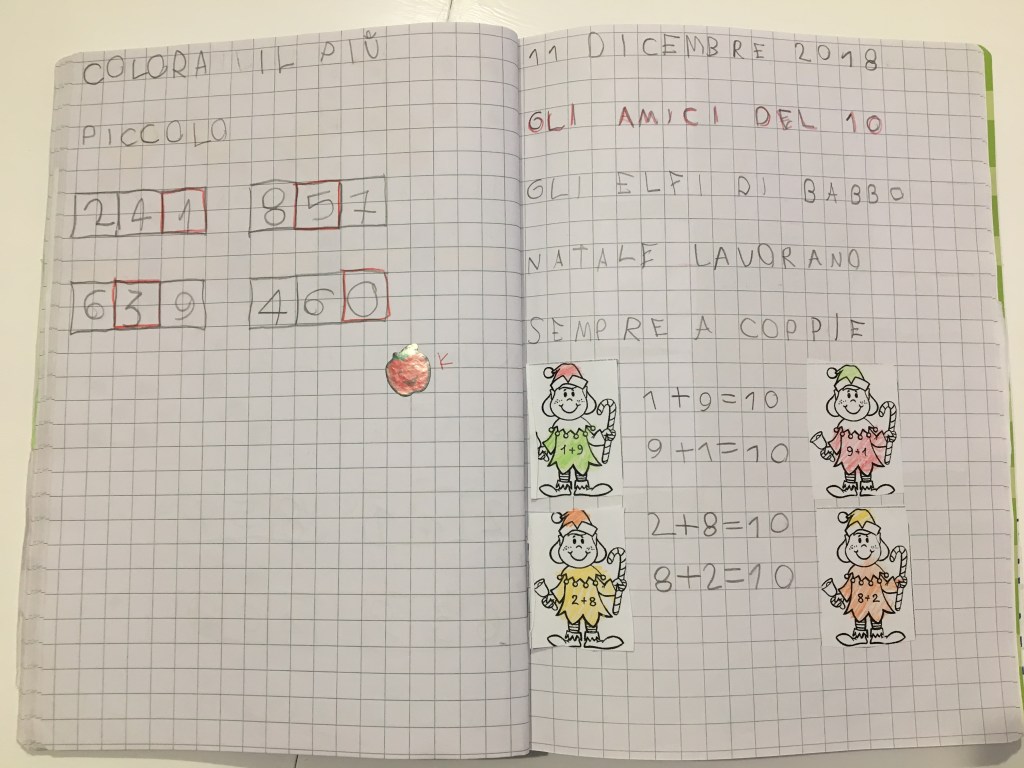 COLORA IL PIÙ
PICCOLO
2 4 1 8 5 7
6 3 9 4 6 0
K
11 DICEMBRE 2018
GLI AMICI DEL 10
GLI ELFI DI BABBO
NATALE LAVORANO
SEMPRE A COPPIE
1+9=10
9+1=10
1+9
9+1
2+8=10
8+2=10
2+8
8+2